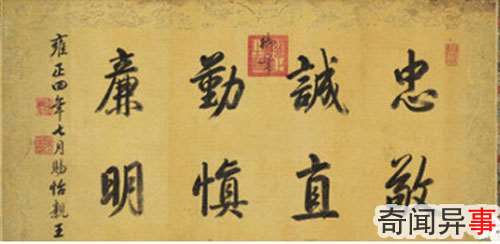 忠敬
誠直
勤慎
廉明
雍正四年七月賜怡親王
御筆
奇闻异事